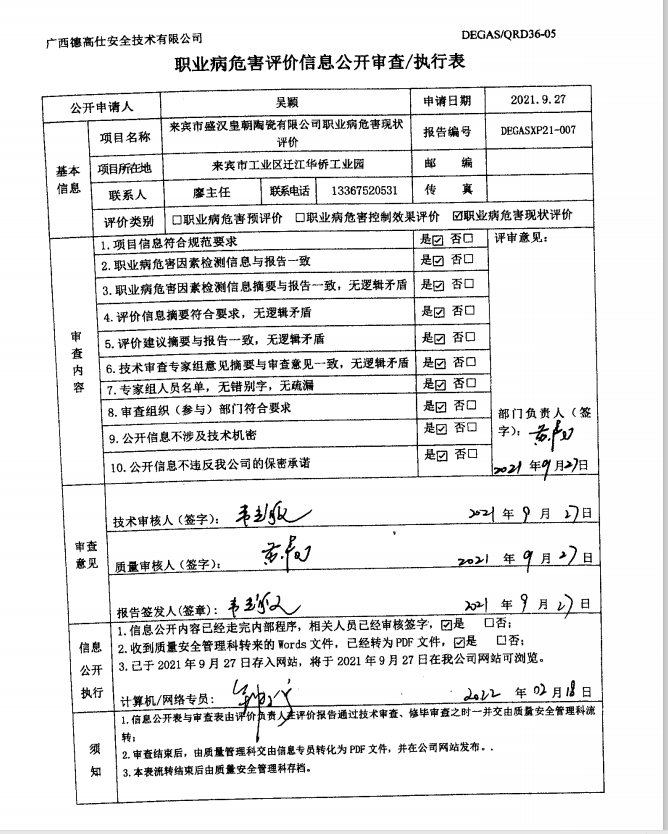 广西德高仕安全技术有限公司
DEGAS/QRD36-05
职业病危害评价信息公开审查/执行表
公开申请人 吴颖 申请日期 2021.9.27
基本信息
项目名称 来宾市盛汉皇朝陶瓷有限公司职业病危害现状评价 报告编号 DEGASXP21-007
项目所在地 来宾市工业区迁江华侨工业园 邮 编
联系人 廖主任 联系电话 13367520531 传 真
评价类别 □职业病危害预评价 □职业病危害控制效果评价 ☑职业病危害现状评价
审查内容
1.项目信息符合规范要求 是☑ 否□
2.职业病危害因素检测信息与报告一致 是☑ 否□
3.职业病危害因素检测信息摘要与报告一致，无逻辑矛盾 是☑ 否□
4.评价信息摘要符合要求，无逻辑矛盾 是☑ 否□
5.评价建议摘要与报告一致，无逻辑矛盾 是☑ 否□
6.技术审查专家组意见摘要与审查意见一致，无逻辑矛盾 是☑ 否□
7.专家组人员名单，无错别字，无疏漏 是☑ 否□
8.审查组织（参与）部门符合要求 是☑ 否□
9.公开信息不涉及技术机密 是☑ 否□
10.公开信息不违反我公司的保密承诺 是☑ 否□
评审意见：
部门负责人（签字）：
2021 年 9 月 27 日
审查意见
技术审核人（签字）： 2021 年 9 月 27 日
质量审核人（签字）： 2021 年 9 月 27 日
报告签发人(签章)： 2021 年 9 月 27 日
信息公开执行
1.信息公开内容已经走完内部程序，相关人员已经审核签字，☑是 □否；
2.收到质量安全管理科转来的Words文件，已经转为PDF文件，☑是 □否；
3.已于2021年9月27日存入网站，将于2021年9月27日在我公司网站可浏览。
计算机/网络专员： 2022 年 02 月 18 日
须知
1.信息公开表与审查表由评价负责人在评价报告通过技术审查、修毕审查之时一并交由质量安全管理科流
转；
2.审查结束后，由质量管理科交由信息专员转化为PDF文件，并在公司网站发布。.
3.本表流转结束后由质量安全管理科存档。